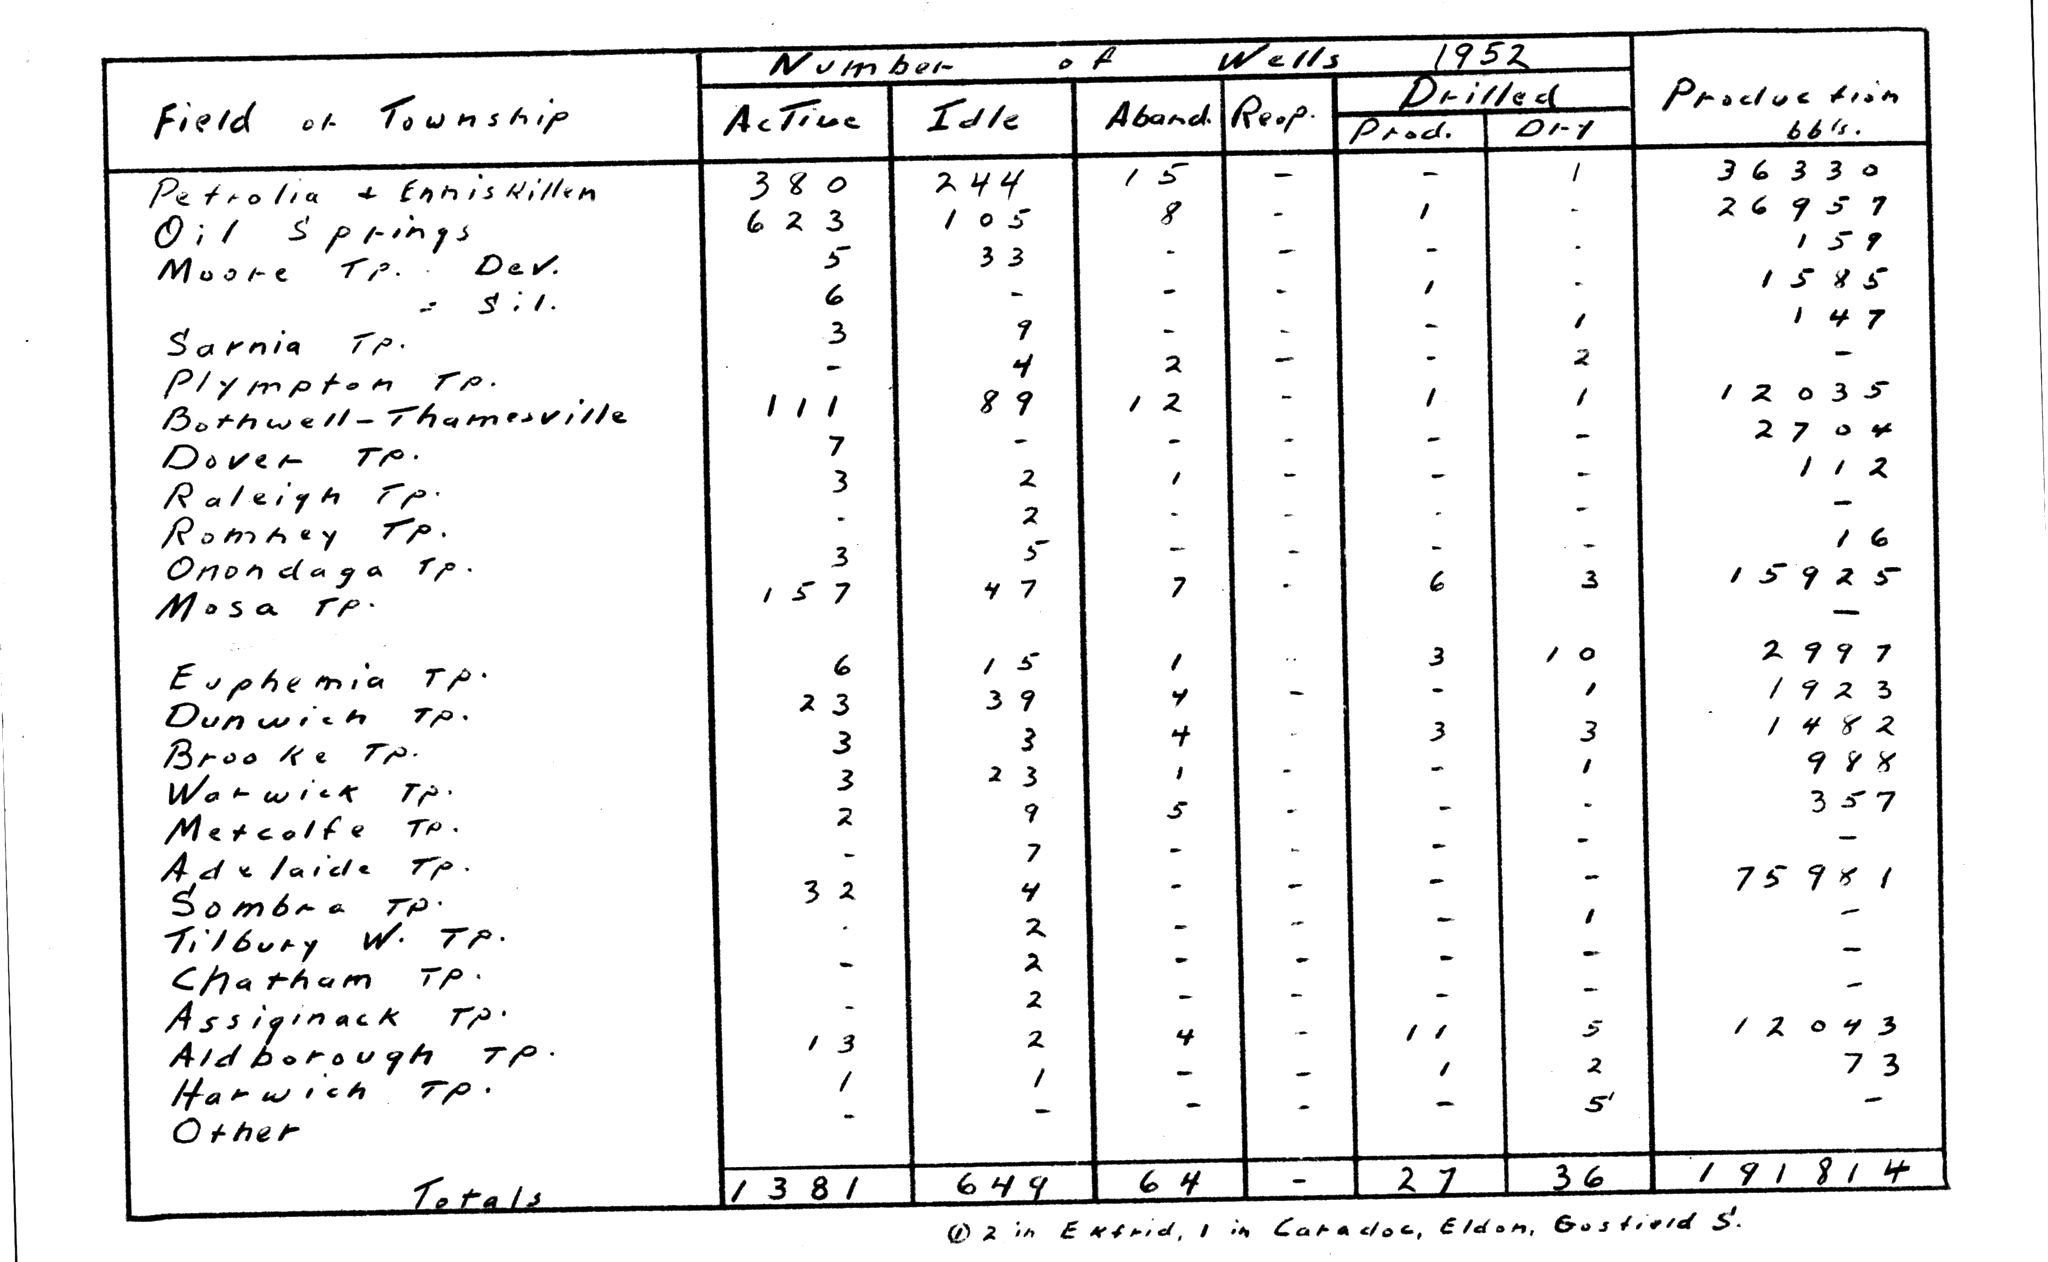 Number of Wells 1952
Field or Township Active Idle Aband. Reop. Drilled Production
Prod. Dry bbls.
Petrolia + Enniskillen 380 244 15 - - 1 36330
Oil Springs 623 105 8 - 1 - 26957
Moore Tp. Dev. 5 33 - - - - 159
= Sil. 6 - - - 1 - 1585
Sarnia Tp. 3 9 - - - 1 147
Plympton Tp. - 4 2 - - 2 -
Bothwell-Thamesville 111 89 12 - 1 1 12035
Dover Tp. 7 - - - - - 2704
Raleigh Tp. 3 2 1 - - - 112
Romney Tp. - 2 - - - - -
Onondaga Tp. 3 5 - - - - 16
Mosa Tp. 157 47 7 - 6 3 15925
-
Euphemia Tp. 6 15 1 - 3 10 2997
Dunwich Tp. 23 39 4 - - 1 1923
Brooke Tp. 3 3 4 - 3 3 1482
Warwick Tp. 3 23 1 - - 1 988
Metcalfe Tp. 2 9 5 - - - 357
Adelaide Tp. - 7 - - - - -
Sombra Tp. 32 4 - - - - 75981
Tilbury W. Tp. - 2 - - - 1 -
Chatham Tp. - 2 - - - - -
Assiginack Tp. - 2 - - - - -
Aldborough Tp. 13 2 4 - 11 5 12043
Harwich Tp. 1 1 - - 1 2 73
Other - - - - - 5' -
Totals 1381 649 64 - 27 36 191814
① 2 in Ekfrid, 1 in Caradoc, Eldon, Gosfield S.